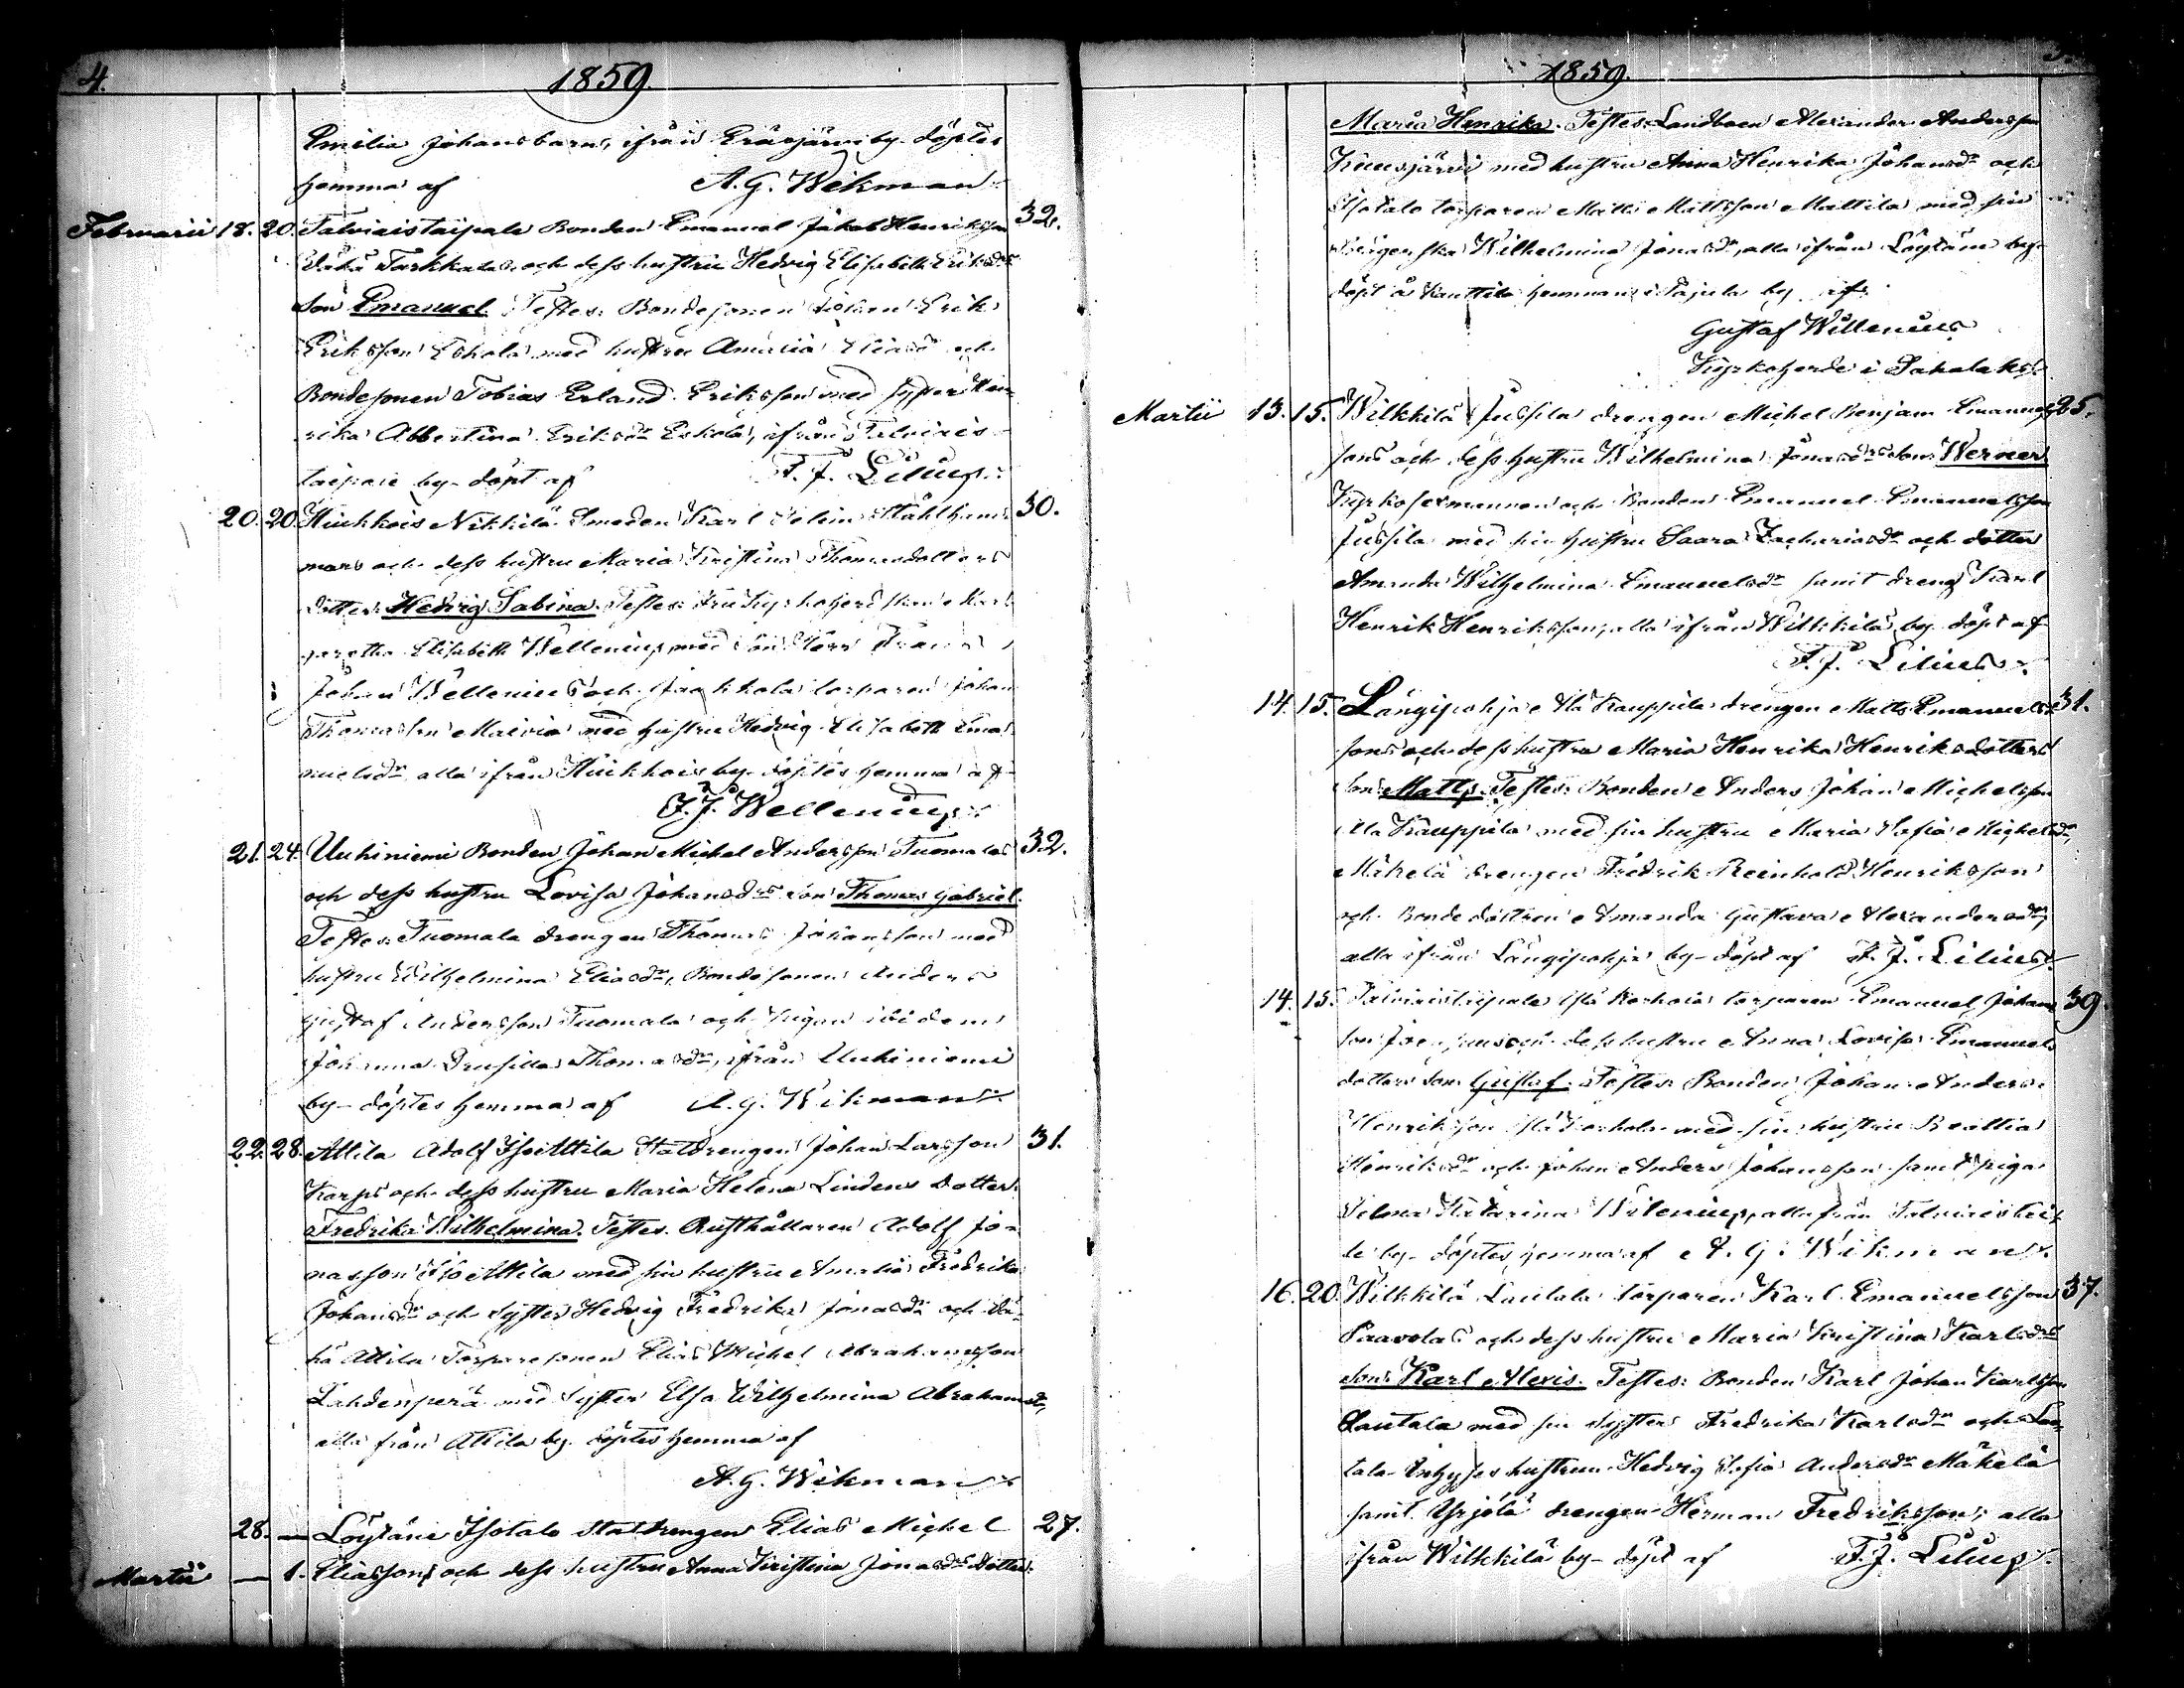 4.
1859.
Emilia Johansbarns, ifrån Eräsjärvi by. döptes
hemma af A. G. Wikman
Februarii 18. 20. Talviaistaipale Bonden Emanuel Jakob Henriksson 32.
Tarkkalas och dess hustru Hedvig Elisabeth Eriksdrs
son Emanuel. Testes: Bondesonen Johan Erik
Eriksson Eskola med hustru Amalia och
Bondesonen Tobias Erland Eriksson med syster Hen-
rika Albertina Eriksdr Eskola, ifrån Talviais-
taipale by döpt af F. J. Lilius.
20. 20. Huikkois Nikkilä Smeden Karl Stålham- 30.
mars och dess hustru Maria Kristina Thomasdotters
dotter: Hedvig Sabina. Testes: Fru Kyrkoherdskan Mar-
garetha Elisabeth Wellenius med son Herr Frans
Johan Wellenius och Jaakkola torparen Johan
Thomasson med hustru Hedvig Elisabeth Ema-
nuelsdr alla ifrån Huikkois by döptes hemma af
F. J. Wellenius.
21. 24. Uuhiniemi Bonden Johan Michel Andersson Tuomalas 32.
och dess hustru Lovisa Johansdrs son Thomas Gabriel.
Testes: Tuomala drengen Thomas Johansson med
hustru Wilhelmina Eliasdr, Bondesonen Anders
Gustaf Andersson Tuomala och pigan ibidem
Johanna Drusilla Thomasdr, ifrån Uuhiniemi
by döptes hemma af A. G. Wikman.
22. 28. Attila Adolf Iso Attila Statdrengen Johan Larsson 31.
Karps och dess hustru Maria Helena Lindens Dotter:
Fredrika Wilhelmina. Testes. Rusthållaren Adolf Jo-
nasson Iso Attila med sin hustru Amalia Fredrika
Johansdr och Syster Hedvig Fredrika Jonasdr och Vä-
hä Attila Torparesonen Elias Michel Abrahamsson
Lahdenperä med Syster Elsa Wilhelmina Abrahamsdr,
alla från Attila by. döptes hemma af
A. G. Wikman
28. — Löytäne Isotalo Statdrengen Elias Michel 27.
Martii — 1. Eliassons och dess hustru Anna Kristina Jonasdrs Dotter:
1859.
Maria Henrika. Testes: Landboen Alexander Andersson
Kuusjärvi med hustru Anna Henrika Johansdr och
Isotalo torparen Matts Mattsson Mattila med sin
Wilhelmina Jonasdr, alla ifrån Löytäne by
döpt å Kauttila hemman i Sajula by af
Gustaf Willenius
Kyrkoherde i Sahalahti
Martii 13. 15. Wilkkilä Jussila drengen Michel Benjam Emanuels- 25.
sons och dess hustru Wilhelmina Jonasdrs son: Werner
Kyrkosexmannen och Bonden Emanuel Emanuelsson
Jussila med sin hustru Saara Zachariasdr och dotter
Amanda Wilhelmina Emanuelsdr samt dreng Karl
Henrik Henriksson, alla ifrån Wilkkilä by döpt af
F. J. Lilius.
14. 15. Längipohja Ala Kauppila drengen Matts Emanuels- 31.
sons och dess hustru Maria Henrika Henriksdotters
son: Matts. Testes: Bonden Anders Johan Michelsson
Ala Kauppila med sin hustru Maria Sofia Michelsdr,
Mäkelä drengen Fredrik Reinhold Henriksson
och Bondedottren Amanda Gustava Alexandersdr,
alla ifrån Längipohja by döpt af F. J. Lilius.
14. 15. Talviaistaipale torparen Emanuel Johans- 39.
son och dess hustru Anna Lovisa Emanuels
dotters son: Gustaf. Testes: Bonden Johan Anders
Henriksson med sin hustru
Henriksdr och Johan Anders Johansson samt pigan
Katarina Wilenius, alla från Talviaistai-
le by döptes hemma af A. G. Wikman.
16. 20. Wilkkilä Lautala torparen Karl Emanuelsson 37.
Paavolas och dess hustru Maria Kristina Karlsdrs
son: Karl Alexis. Testes: Bonden Karl Johan Karlsson
Lautala med sin Syster Fredrika Karlsdr och Lau-
tala Inhyses hustrun Hedvig Sofia Andersdr Mäkelä
samt Yrjölä drengen Herman Fredriksson, alla
ifrån Wilkkilä by döpt af F. J. Lilius.